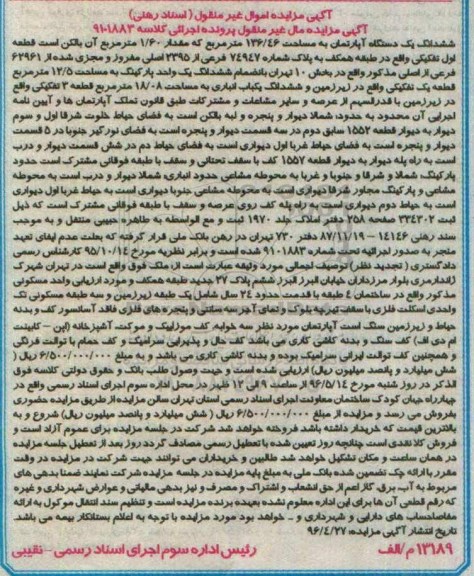 آگهی مزایده اموال غیر منقول (اسناد رهنی)
آگهی مزایده مال غیر منقول پرونده اجرائی کلاسه ۹۱۰۱۸۸۳
ششدانگ یک دستگاه آپارتمان به مساحت ۱۳۶/۴۶ مترمربع که مقدار ۱/۶۰ مترمربع آن بالکن است قطعه
اول تفکیکی واقع در طبقه همکف به پلاک شماره ۷۴۹۴۷ فرعی از ۲۳۹۵ اصلی مفروز و مجزی شده از ۶۲۹۶۱
فرعی از اصلی مذکور واقع در بخش ۱۰ تهران بانضمام ششدانگ یک واحد پارکینگ به مساحت ۱۲/۵ مترمربع
قطعه یک تفکیکی واقع در زیرزمین و ششدانگ یکباب انباری به مساحت ۱۸/۰۸ مترمربع قطعه ۳ تفکیکی واقع
در زیرزمین با قدرالسهم از عرصه و سایر مشاعات و مشترکات طبق قانون تملک آپارتمان ها و آیین نامه
اجرایی آن محدود به حدود: شمالا دیوار و پنجره و لبه بالکن است به فضای حیاط خلوت شرقا اول و سوم
دیوار به دیوار قطعه ۱۵۵۲ سابق دوم در سه قسمت دیوار و پنجره است به فضای نورگیر جنوبا در ۵ قسمت
دیوار و پنجره است به فضای حیاط غربا اول دیواری است به فضای حیاط دم در شش قسمت دیوار و درب
است به راه پله دیوار به دیوار قطعه ۱۵۵۷ کف با سقف تحتانی و سقف با طبقه فوقانی مشترک است حدود
پارکینگ شمالا و شرقا و جنوبا و غربا به محوطه مشاعی حدود انباری: شمالا دیوار و درب است به محوطه
مشاعی و پارکینگ مجاور شرقا دیواری است به محوطه مشاعی جنوبا دیواری است به حیاط غربا اول دیواری
است به حیاط دوم دیواری است به راه پله کف روی عرصه و سقف با طبقه فوقانی مشترک است که ذیل
ثبت ۳۳۴۳۰۲ صفحه ۲۵۸ دفتر املاک جلد ۱۹۷۰ ثبت و مع الواسطه به طاهره حبیبی منتقل و به موجب
سند رهنی ۱۴۱۴۶ - ۸۷/۱۱/۱۹ دفتر ۷۳۰ تهران در رهن بانک ملی قرار گرفته که بعلت عدم ایفای تعهد
منجر به صدور اجرائیه تحت شماره ۹۱۰۱۸۸۳ شده است و برابر نظریه مورخ ۹۵/۱۰/۱۴ کارشناس رسمی
دادگستری (تجدید نظر) توصیف اجمالی مورد وثیقه عبارت است از: ملک فوق واقع است در تهران شهرک
ژاندارمری بلوار مرزداران خیابان البرز البرز ششم پلاک ۳۷ جدید طبقه همکف و مورد ارزیابی واحد مسکونی
مذکور واقع در ساختمان ۴ طبقه با قدمت حدود ۲۴ سال شامل یک طبقه زیرزمین و سه طبقه مسکونی تک
واحدی اسکلت فلزی با سقف تیرچه بلوک و نمای آجر سه سانتی و پنجره های فلزی فاقد آسانسور کف و بدنه
حیاط و زیرزمین سنگ است آپارتمان مورد نظر سه خوابه، کف موزاییک و موکت، آشپزخانه (اپن - کابینت
ام دی اف) کف سنگ و بدنه کاشی کاری می باشد کف حال و پذیرایی سرامیک و کف حمام با توالت فرنگی
و همچنین کف توالت ایرانی سرامیک بوده و بدنه کاشی کاری می باشد و به مبلغ ۶/۵۰۰/۰۰۰/۰۰۰ ریال (
شش میلیارد و پانصد میلیون ریال) ارزیابی شده است و جهت وصول طلب بانک و حقوق دولتی کلاسه فوق
الذکر در روز شنبه مورخ ۹۶/۵/۱۴ از ساعت ۹ الی ۱۲ ظهر در محل اداره سوم اجرای اسناد رسمی واقع در
چهارراه جهان کودک ساختمان معاونت اجرای اسناد رسمی استان تهران سالن مزایده از طریق مزایده حضوری
بفروش می رسد و مزایده از مبلغ ۶/۵۰۰/۰۰۰/۰۰۰ ریال (شش میلیارد و پانصد میلیون ریال) شروع و به
بالاترین قیمت که خریدار داشته باشد فروخته خواهد شد شرکت در جلسه مزایده برای عموم آزاد است و
فروش کلا نقدی است چنانچه روز تعیین شده با تعطیل رسمی مصادف گردد روز بعد از تعطیل جلسه مزایده
در همان ساعت و مکان تشکیل خواهد شد طالبین و خریداران می توانند جهت شرکت در مزایده در وقت
مقرر با ارائه چک تضمین شده بانک ملی به مبلغ پایه مزایده در جلسه مزایده شرکت نمایند ضمنا بدهی های
مربوط به آب، برق، گاز اعم از حق انشعاب و اشتراک و مصرف و نیز بدهی مالیاتی و عوارض شهرداری و غیره
که رقم قطعی آن ها برای این اداره معلوم نشده بعهده برنده مزایده است و تنظیم سند انتقال موکول به ارائه
مفاصاحساب های دارایی و شهرداری و ... خواهد بود مورد مزایده با توجه به اعلام بستانکار بیمه می باشد.
تاریخ انتشار آگهی مزایده: ۹۶/۴/۲۷
۱۳۱۸۹ م/الف رئیس اداره سوم اجرای اسناد رسمی - نقیبی